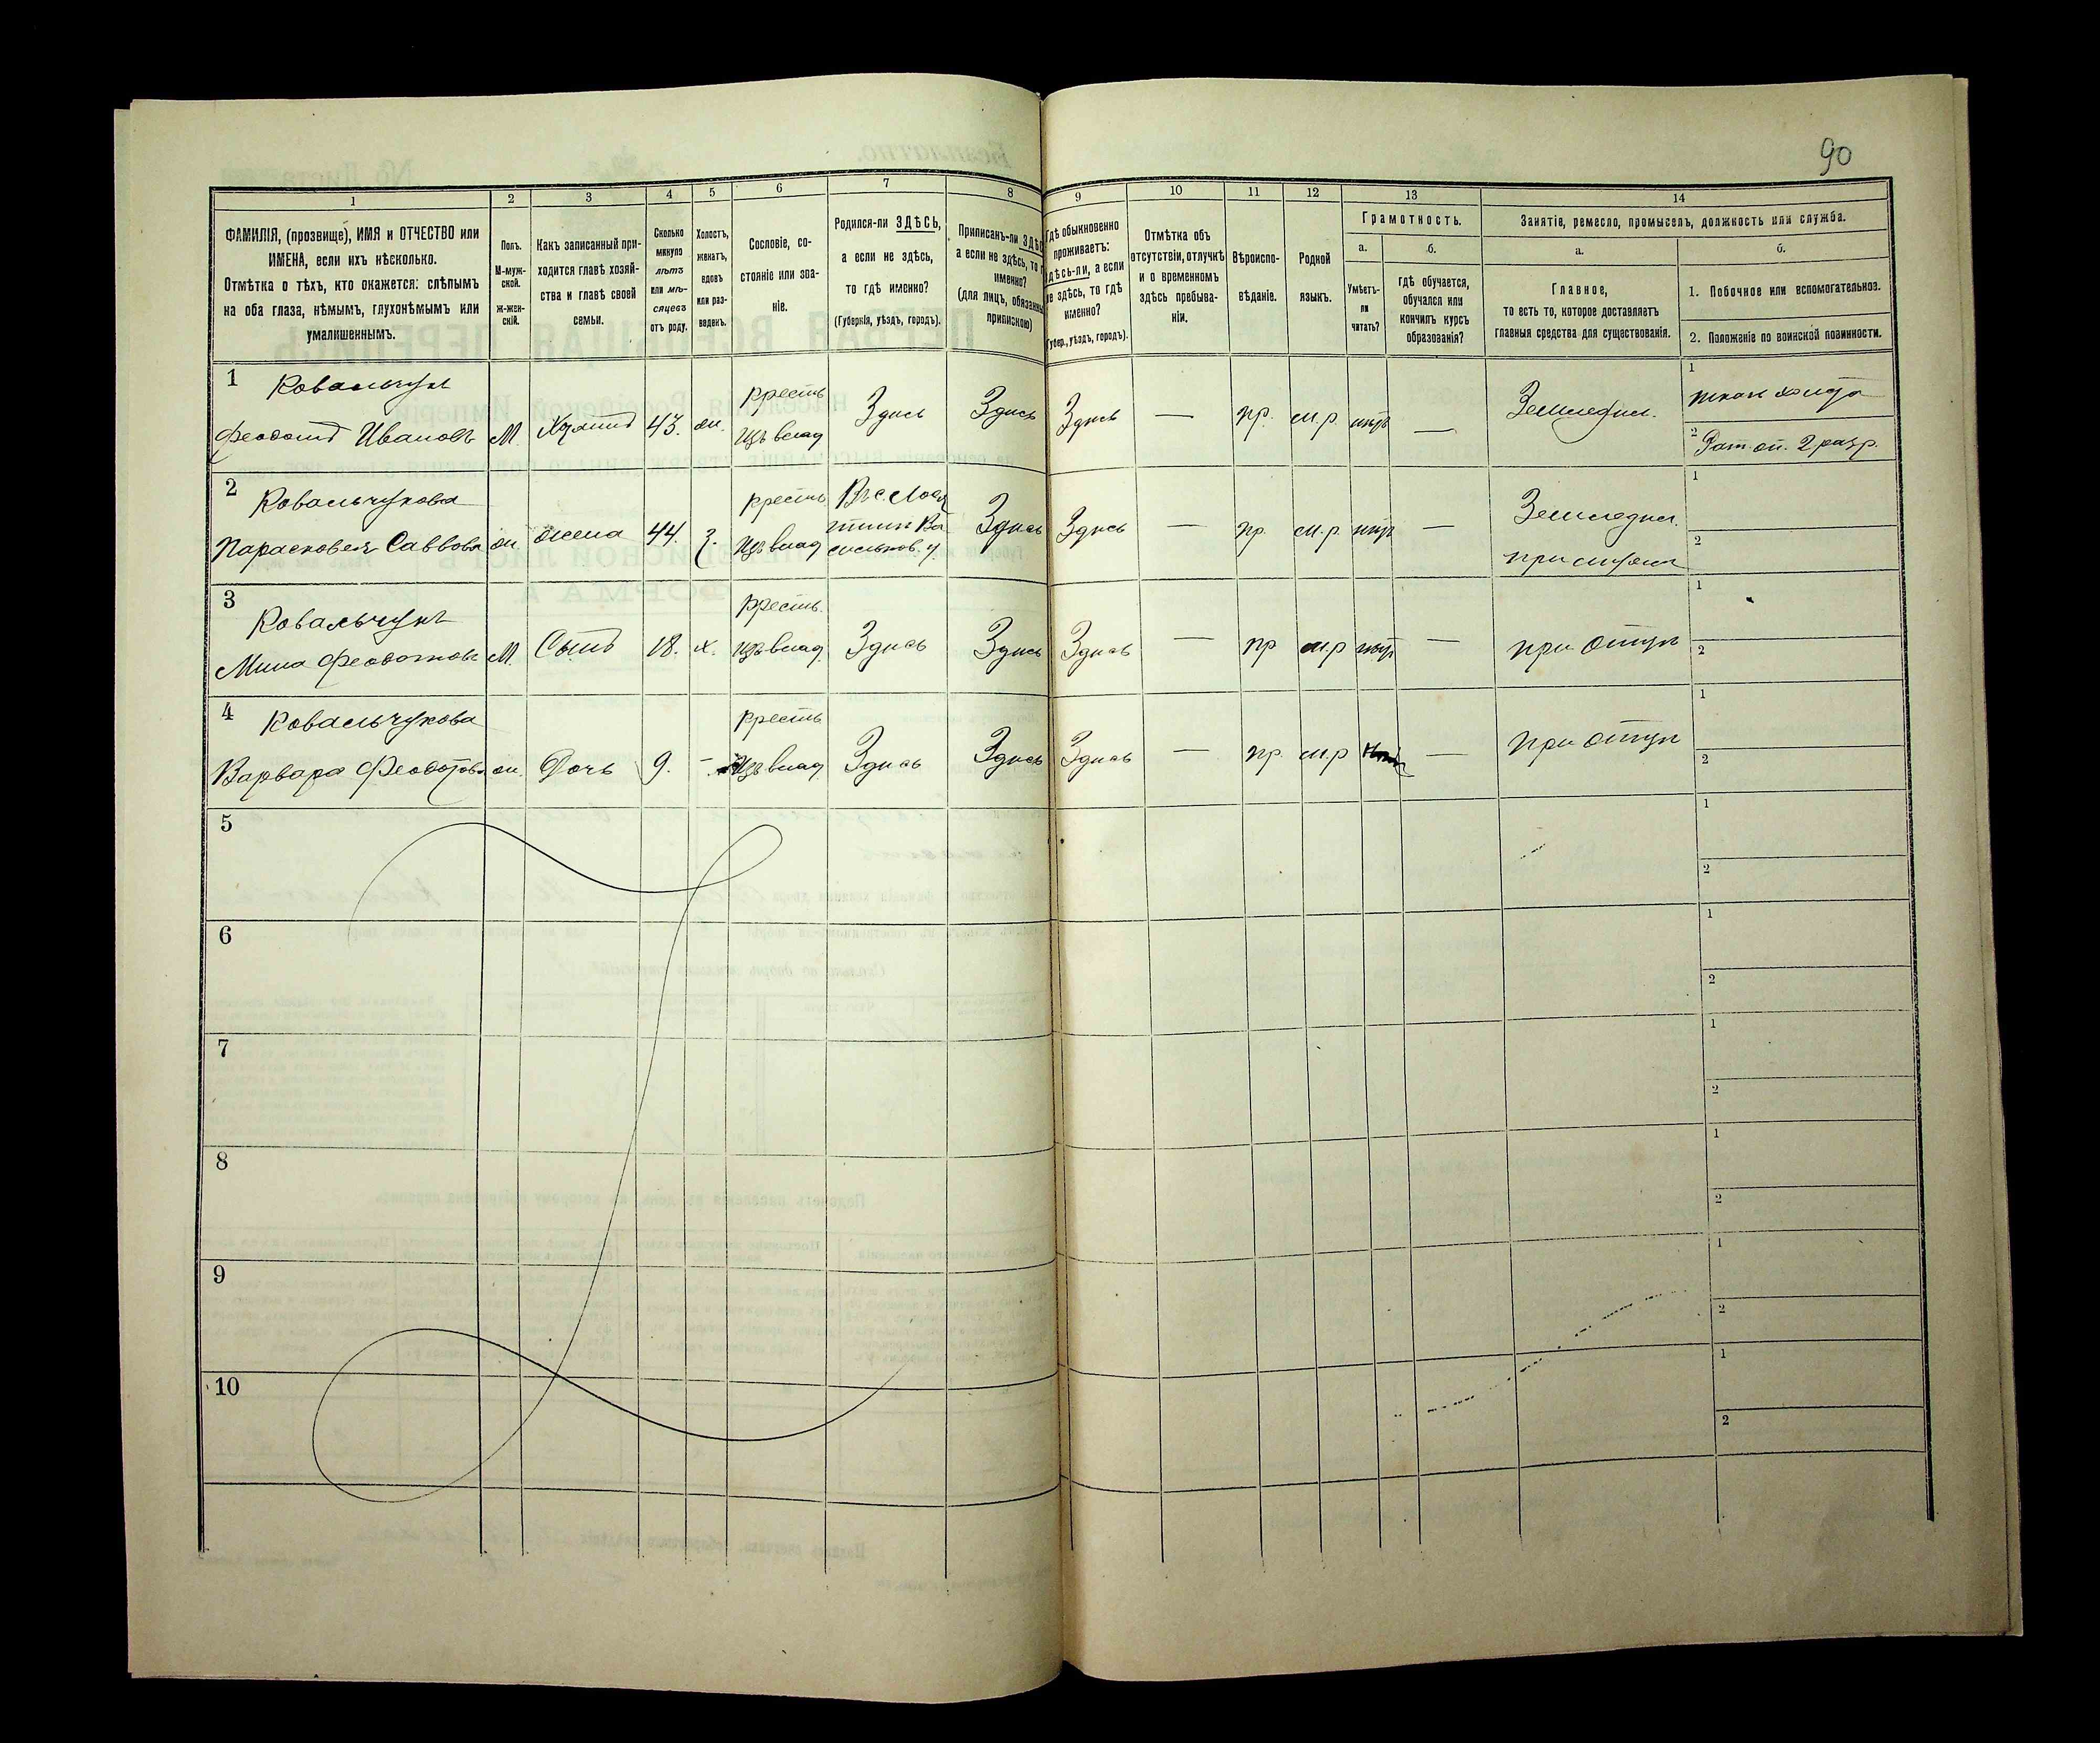 90
1 2 3 4 5 6 7 8 9 10 11 12 13 14
ФАМИЛІЯ, (прозвище), ИМЯ и ОТЧЕСТВО или
ИМЕНА, если ихъ нѣсколько.
Отмѣтка о тѣхъ, кто окажется: слѣпымъ
на оба глаза, нѣмымъ, глухонѣмымъ или
умалишеннымъ.
Полъ.
М-муж-
ской.
ж-жен-
скій.
Какъ записанный при-
ходится главѣ хозяй-
ства и главѣ своей
семьи.
Сколько
минуло
лѣтъ
или мѣ-
сяцевъ
отъ роду.
Холостъ,
женатъ,
вдовъ
или раз-
веденъ.
Сословіе, со-
стояніе или зва-
ніе.
Родился-ли ЗДѢСЬ,
а если не здѣсь,
то гдѣ именно?
(Губернія, уѣздъ, городъ).
Приписанъ-ли ЗДѢС
а если не здѣсь, то г
именно?
(для лицъ, обязанны
припискою)
Гдѣ обыкновенно
проживаетъ:
здѣсь-ли, а если
не здѣсь, то гдѣ
именно?
Губер., уѣздъ, городъ).
Отмѣтка объ
отсутствіи, отлучкѣ
и о временномъ
здѣсь пребыва-
ніи.
Вѣроиспо-
вѣданіе.
Родной
языкъ.
Грамотность.
а.
Умѣетъ-
ли
читать?
б.
Гдѣ обучается,
обучался или
кончилъ курсъ
образованія?
Занятіе, ремесло, промыселъ, должность или служба.
а.
Главное,
то есть то, которое доставляетъ
главныя средства для существованія.
б.
1. Побочное или вспомогательное.
2. Положеніе по воинской повинности.
1
Ковальчукъ
Феодотъ Ивановъ
М.
Хозяинъ
43.
ж.
кресть
изъ влад
Здѣсь
Здѣсь
Здѣсь
—
пр.
м.р.
нѣтъ
—
Земледѣл.
1
2 Рат. оп. 2 разр.
2
Ковальчукова
Парасковея Саввова
ж.
жена
44.
З.
крестьь
изъ влад
Въ с.
Здѣсь
Здѣсь
—
пр.
м.р.
нѣтъ
—
Земледѣл.
при мужѣ
1
2
3
Ковальчукъ
Мина Феодотовъ
М.
Сынъ
18.
х.
кресть.
изъ влад.
Здѣсь
Здѣсь
Здѣсь
—
пр
м.р
нѣтъ
—
при отцѣ
1
2
4
Ковальчукова
Варвара Феодотова
ж.
Дочь
9.
-
кресть
изъ влад.
Здѣсь
Здѣсь
Здѣсь
—
пр.
м.р
—
при отцѣ
1
2
5
1
2
6
1
2
7
1
2
8
1
2
9
1
2
10
1
2